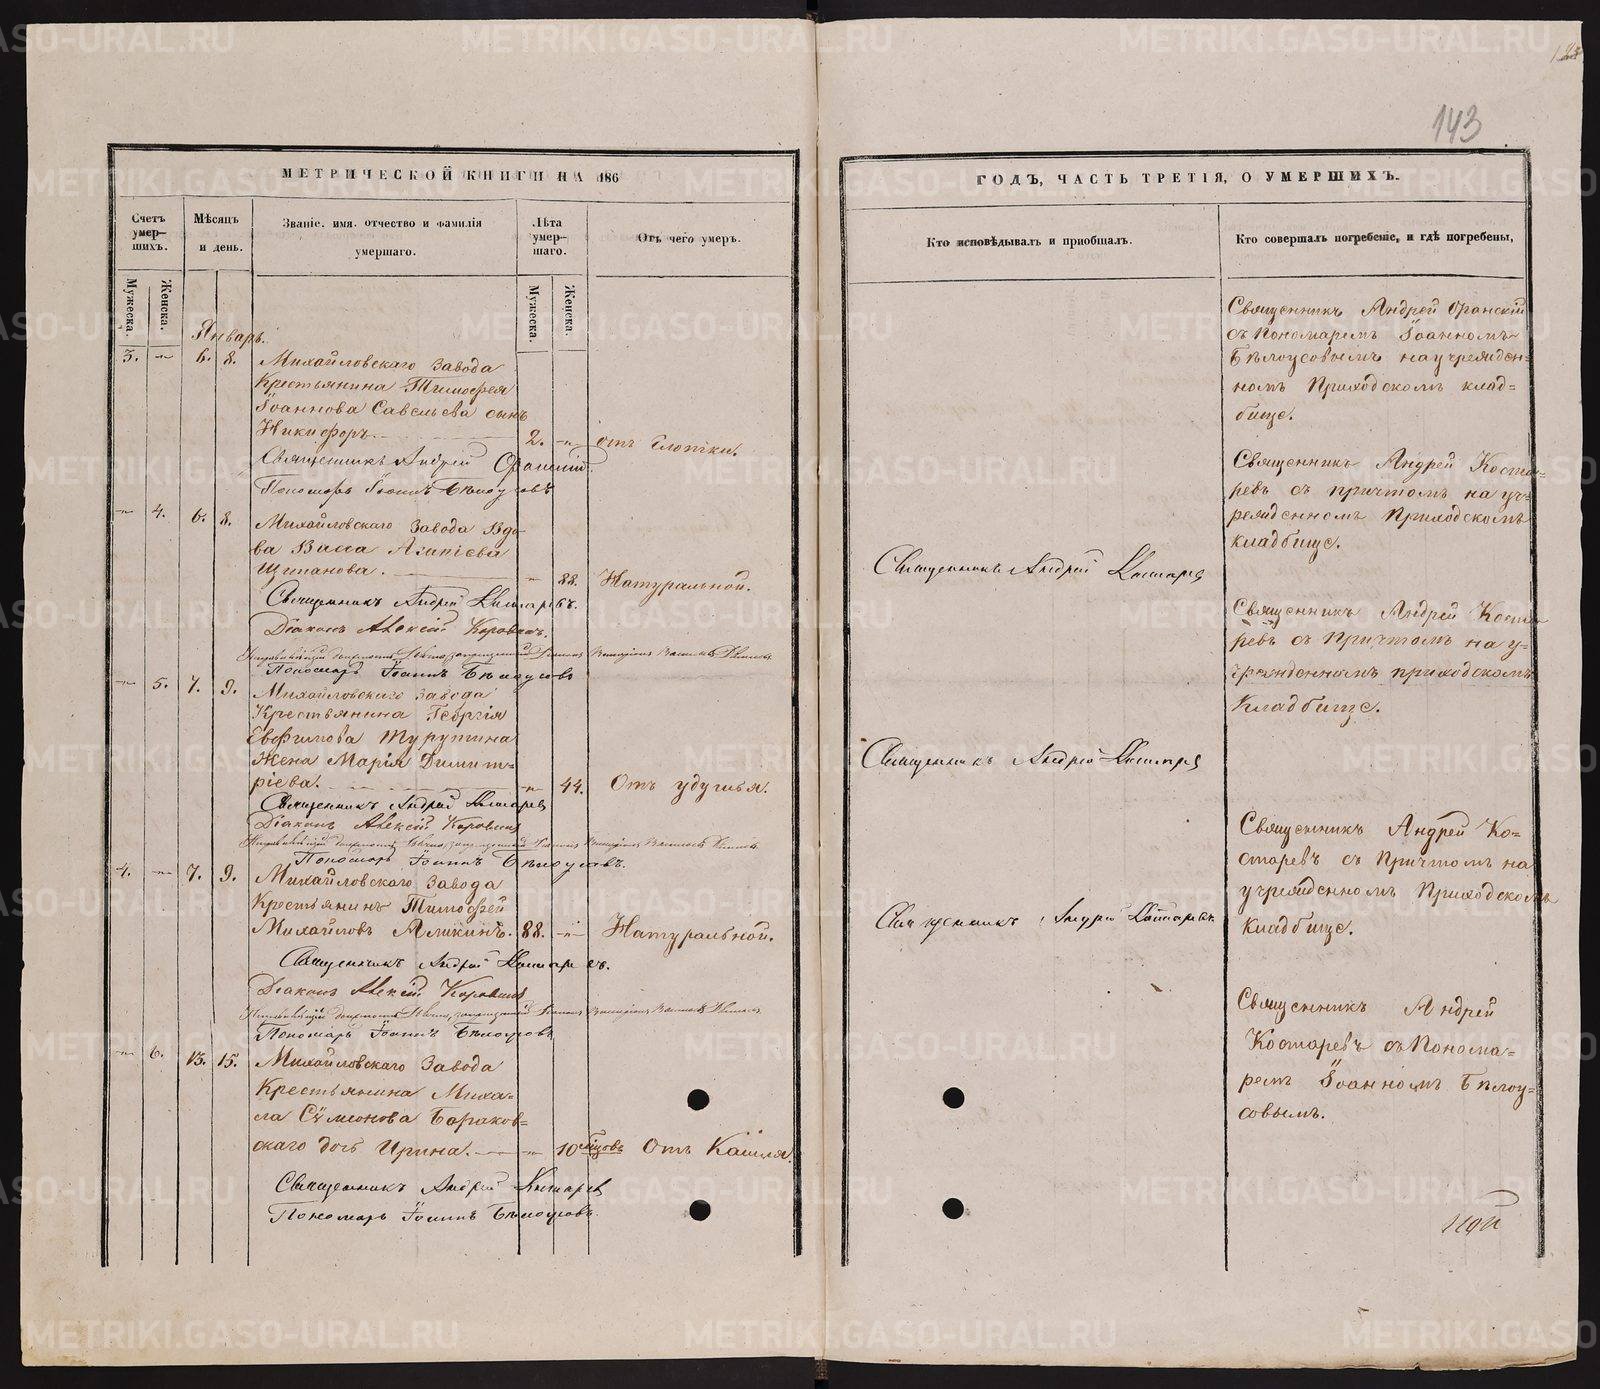 143
МЕТРИЧЕСКОЙ КНИГИ НА 186
Счетъ умер-шихъ.
Мѣсяцъ и день.
Званіе. имя. отчество и фамилія умершаго.
Лѣта умер-шаго.
Отъ чего умеръ.
Мужеска.
Женска.
Мужеска.
Женска.
Январь.
3. 6. 8. Михайловскаго Завода
Крестьянина Тимофея
Іоаннова Савельева сынъ
Никифоръ. 2. отъ Глотки.
Священникъ Андрей Оранскій.
Пономарь Іоаннъ Бѣлоусовъ
4. 6. 8. Михайловскаго Завода Вдо-
ва Васса Агапіева
Щипанова. 88. Натуральной.
Священникъ Андрей Костаревъ.
Діаконъ Алексій Коровинъ.
Пономарь Іоаннъ Бѣлоусовъ
5. 7. 9. Михайловскаго Завода
Крестьянина Георгія
Евфимова Турутина
Жена Марія Димит-
ріева. 44. Отъ удушья.
Священникъ Андрей Костаревъ
Діаконъ Алексій Коровинъ
Пономарь Іоаннъ Бѣлоусовъ.
4. 7. 9. Михайловскаго Завода
Крестьянинъ Тимофей
Михайловъ Аликинъ. 88. Натуральной.
Священникъ Андрей Костаревъ.
Діаконъ Алексій Коровинъ
Пономарь Іоаннъ Бѣлоусовъ
6. 13. 15. Михайловскаго Завода
Крестьянина Миха-
ла Сѵмеонова Бараков-
скаго дочь Ирина. 10 мѣсяцовъ Отъ Кашля.
Священникъ Андрей Костаревъ
Пономарь Іоаннъ Бѣлоусовъ.
ГОДЪ, ЧАСТЬ ТРЕТІЯ, О УМЕРШИХЪ.
Кто исповѣдывалъ и пріобщалъ.
Кто совершалъ погребеніе, и гдѣ погребены,
Священникъ Андрей Оранскій
съ Пономаремъ Іоанномъ
Бѣлоусовымъ на учрежден-
номъ Приходскомъ клад-
бище.
Священникъ Андрей Коста-
ревъ съ причтомъ на уч-
режденномъ Приходскомъ
кладбище.
Священникъ Андрей Костаревъ
Священникъ Андрей Коста-
ревъ съ Причтомъ на у-
чрежденномъ приходскомъ
Кладбище.
Священникъ Андрей Костаревъ
Священникъ Андрей Ко-
старевъ съ Причтомъ на
учрежденномъ Приходскомъ
Кладбище.
Священникъ Андрей Костаревъ
Священникъ Андрей
Костаревъ съ Понома-
ремъ Іоанномъ Бѣлоу-
совымъ.
METRIKI.GASO-URAL.RU